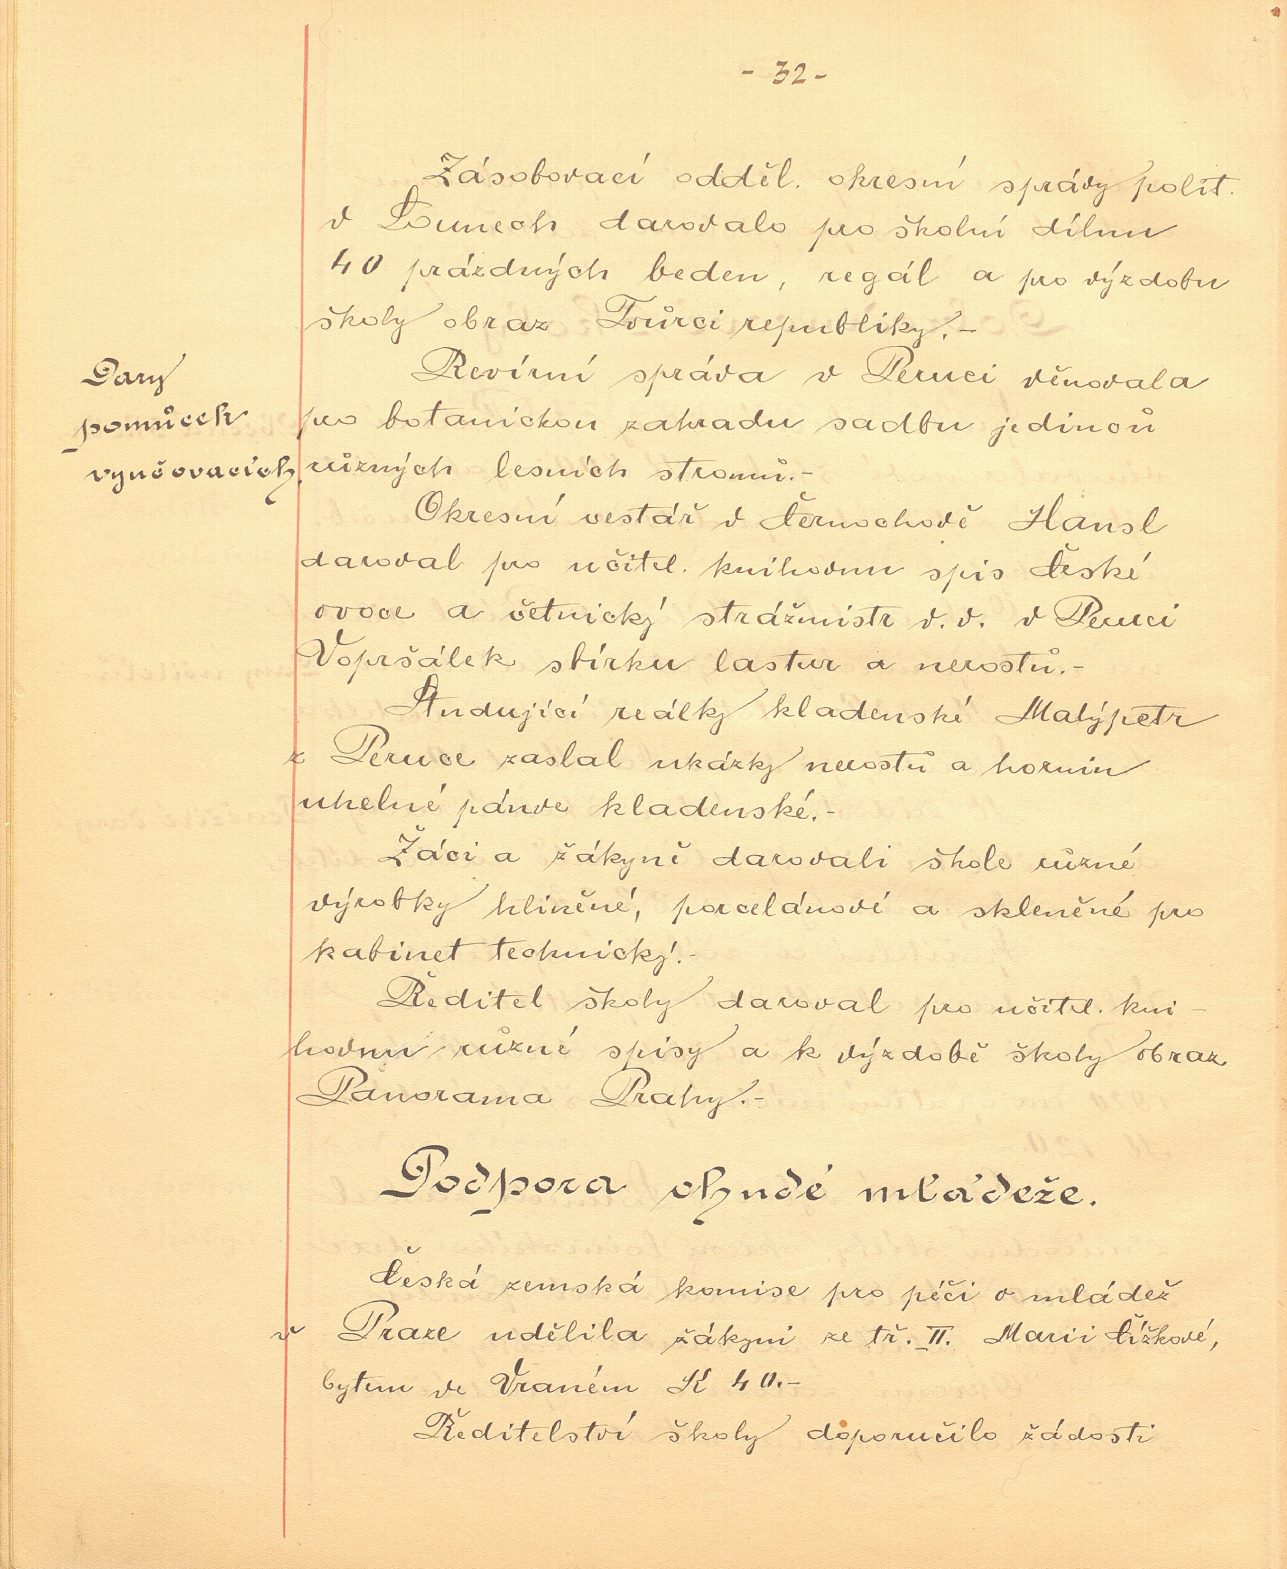 - 32 -
Zásobovací odděl. okresní správy polit.
v Lounech darovalo pro školní dílnu
40 prázdných beden, regál a pro výzdobu
školy obraz Tvůrci republiky.-
Dary
pomůcek
vyučovacích
Revírní správa v Peruci věnovala
pro botanickou zahradu sadbu jedinců
různých lesních stromů.-
Okresní cestář v Černochově Hansl
daroval pro učitel. knihovnu spis České
ovoce a četnický strážmistr v.v. v Peruci
Vopršálek sbírku lastur a nerostů.-
Studující reálky kladenské Malýpetr
z Peruce zaslal ukázky nerostů a hornin
uhelné pánve kladenské.-
Žáci a žákyně darovali škole různé
výrobky hliněné, porcelánové a skleněné pro
kabinet technický.-
Ředitel školy daroval pro učitel. kni-
hovnu různé spisy a k výzdobě školy obraz
Panorama Prahy.-
Podpora chudé mládeže.
Česká zemská komise pro péči o mládež
v Praze udělila žákyni ze tř. II. Marii Čížkové,
bytem ve Vraném K 40.-
Ředitelství školy doporučilo žádosti